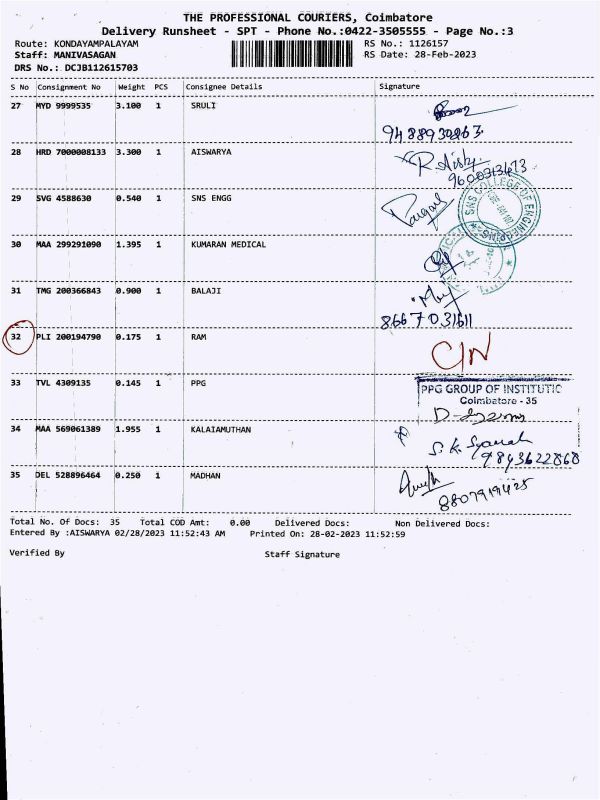 THE PROFESSIONAL COURIERS, Coimbatore
Delivery Runsheet - SPT - Phone No.:0422-3505555 - Page No.:3
Route: KONDAYAMPALAYAM RS No.: 1126157
Staff: MANIVASAGAN RS Date: 28-Feb-2023
DRS No.: DCJB112615703
S No Consignment No Weight PCS Consignee Details Signature
27 MYD 9999535 3.100 1 SRULI
9488930863
28 HRD 7000008133 3.300 1 AISWARYA
9600313673
29 SVG 4588630 0.540 1 SNS ENGG
SNS COLLEGE OF ENGINEERING
30 MAA 299291090 1.395 1 KUMARAN MEDICAL
31 TMG 200366843 0.900 1 BALAJI
8667031611
32 PLI 200194790 0.175 1 RAM
C/N
33 TVL 4309135 0.145 1 PPG
PPG GROUP OF INSTITUTIO
Coimbatore - 35
34 MAA 569061389 1.955 1 KALAIAMUTHAN
9843622868
35 DEL 528896464 0.250 1 MADHAN
8807919425
Total No. Of Docs: 35 Total COD Amt: 0.00 Delivered Docs: Non Delivered Docs:
Entered By :AISWARYA 02/28/2023 11:52:43 AM Printed On: 28-02-2023 11:52:59
Verified By Staff Signature